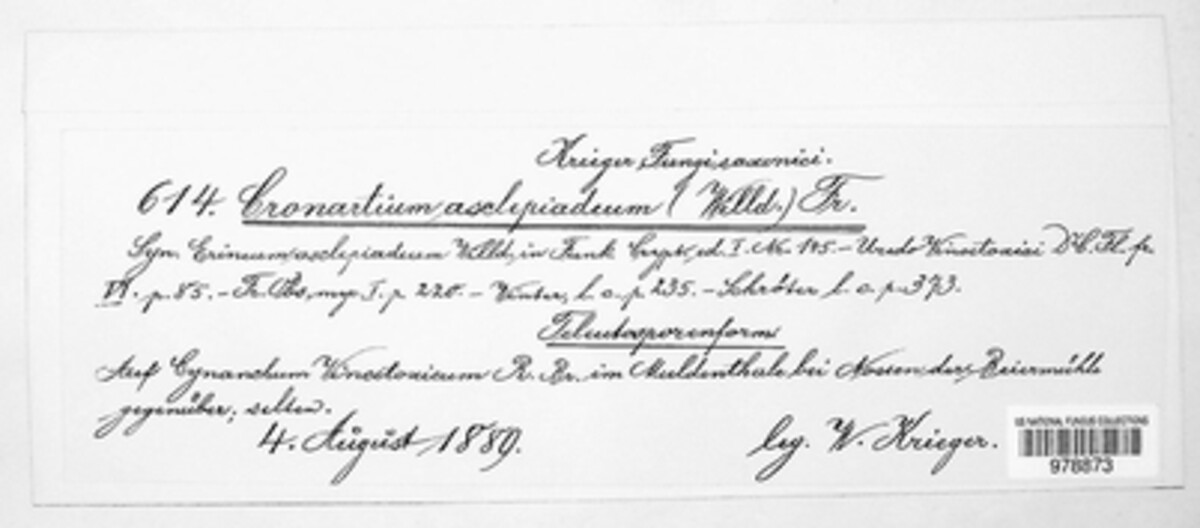 Krieger, Fungi saxonici.
614. Cronartium asclepiadeum (Willd.) Fr.
Syn. Erineum asclepiadeum Willd. in Funk Crypt. ed. I. Nr. 145. – Uredo Vincetoxici DC. Fl. fr.
VI. p. 85. – Fr. Obs. myc. I. p. 220. – Winter, l. c. p. 235. – Schröter l. c. p. 373.
Teleutosporenform
Auf Cynanchum Vincetoxicum R. Br. im Muldenthale bei Nossen, der Beiermühle
gegenüber; selten.
4. August 1889.
leg. W. Krieger.
US NATIONAL FUNGUS COLLECTIONS
978873